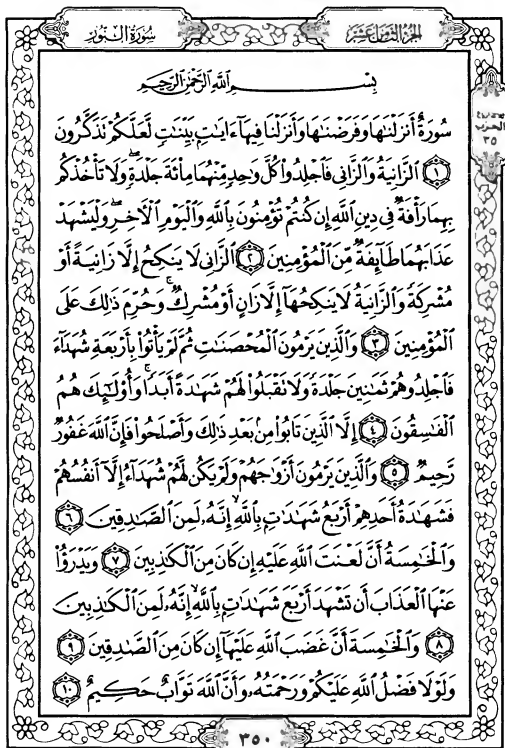 سُورَةُ النُّورِ
الجُزْءُ الثَّامِنَ عَشَرَ
بِسْمِ اللَّهِ الرَّحْمَٰنِ الرَّحِيمِ
الحزب
٣٥
سُورَةٌ أَنزَلْنَٰهَا وَفَرَضْنَٰهَا وَأَنزَلْنَا فِيهَآ ءَايَٰتٍۭ بَيِّنَٰتٍ لَّعَلَّكُمْ تَذَكَّرُونَ
١ ٱلزَّانِيَةُ وَٱلزَّانِى فَٱجْلِدُوا۟ كُلَّ وَٰحِدٍ مِّنْهُمَا مِا۟ئَةَ جَلْدَةٍ ۖ وَلَا تَأْخُذْكُم
بِهِمَا رَأْفَةٌ فِى دِينِ ٱللَّهِ إِن كُنتُمْ تُؤْمِنُونَ بِٱللَّهِ وَٱلْيَوْمِ ٱلْـَٔاخِرِ ۖ وَلْيَشْهَدْ
عَذَابَهُمَا طَآئِفَةٌ مِّنَ ٱلْمُؤْمِنِينَ ٢ ٱلزَّانِى لَا يَنكِحُ إِلَّا زَانِيَةً أَوْ
مُشْرِكَةً وَٱلزَّانِيَةُ لَا يَنكِحُهَآ إِلَّا زَانٍ أَوْ مُشْرِكٌ ۚ وَحُرِّمَ ذَٰلِكَ عَلَى
ٱلْمُؤْمِنِينَ ٣ وَٱلَّذِينَ يَرْمُونَ ٱلْمُحْصَنَٰتِ ثُمَّ لَمْ يَأْتُوا۟ بِأَرْبَعَةِ شُهَدَآءَ
فَٱجْلِدُوهُمْ ثَمَٰنِينَ جَلْدَةً وَلَا تَقْبَلُوا۟ لَهُمْ شَهَٰدَةً أَبَدًا ۚ وَأُو۟لَٰٓئِكَ هُمُ
ٱلْفَٰسِقُونَ ٤ إِلَّا ٱلَّذِينَ تَابُوا۟ مِنۢ بَعْدِ ذَٰلِكَ وَأَصْلَحُوا۟ فَإِنَّ ٱللَّهَ غَفُورٌ
رَّحِيمٌ ٥ وَٱلَّذِينَ يَرْمُونَ أَزْوَٰجَهُمْ وَلَمْ يَكُن لَّهُمْ شُهَدَآءُ إِلَّآ أَنفُسُهُمْ
فَشَهَٰدَةُ أَحَدِهِمْ أَرْبَعُ شَهَٰدَٰتٍۭ بِٱللَّهِ ۙ إِنَّهُۥ لَمِنَ ٱلصَّٰدِقِينَ ٦
وَٱلْخَٰمِسَةُ أَنَّ لَعْنَتَ ٱللَّهِ عَلَيْهِ إِن كَانَ مِنَ ٱلْكَٰذِبِينَ ٧ وَيَدْرَؤُا۟
عَنْهَا ٱلْعَذَابَ أَن تَشْهَدَ أَرْبَعَ شَهَٰدَٰتٍۭ بِٱللَّهِ ۙ إِنَّهُۥ لَمِنَ ٱلْكَٰذِبِينَ
٨ وَٱلْخَٰمِسَةَ أَنَّ غَضَبَ ٱللَّهِ عَلَيْهَآ إِن كَانَ مِنَ ٱلصَّٰدِقِينَ ٩
وَلَوْلَا فَضْلُ ٱللَّهِ عَلَيْكُمْ وَرَحْمَتُهُۥ وَأَنَّ ٱللَّهَ تَوَّابٌ حَكِيمٌ ١٠
٣٥٠